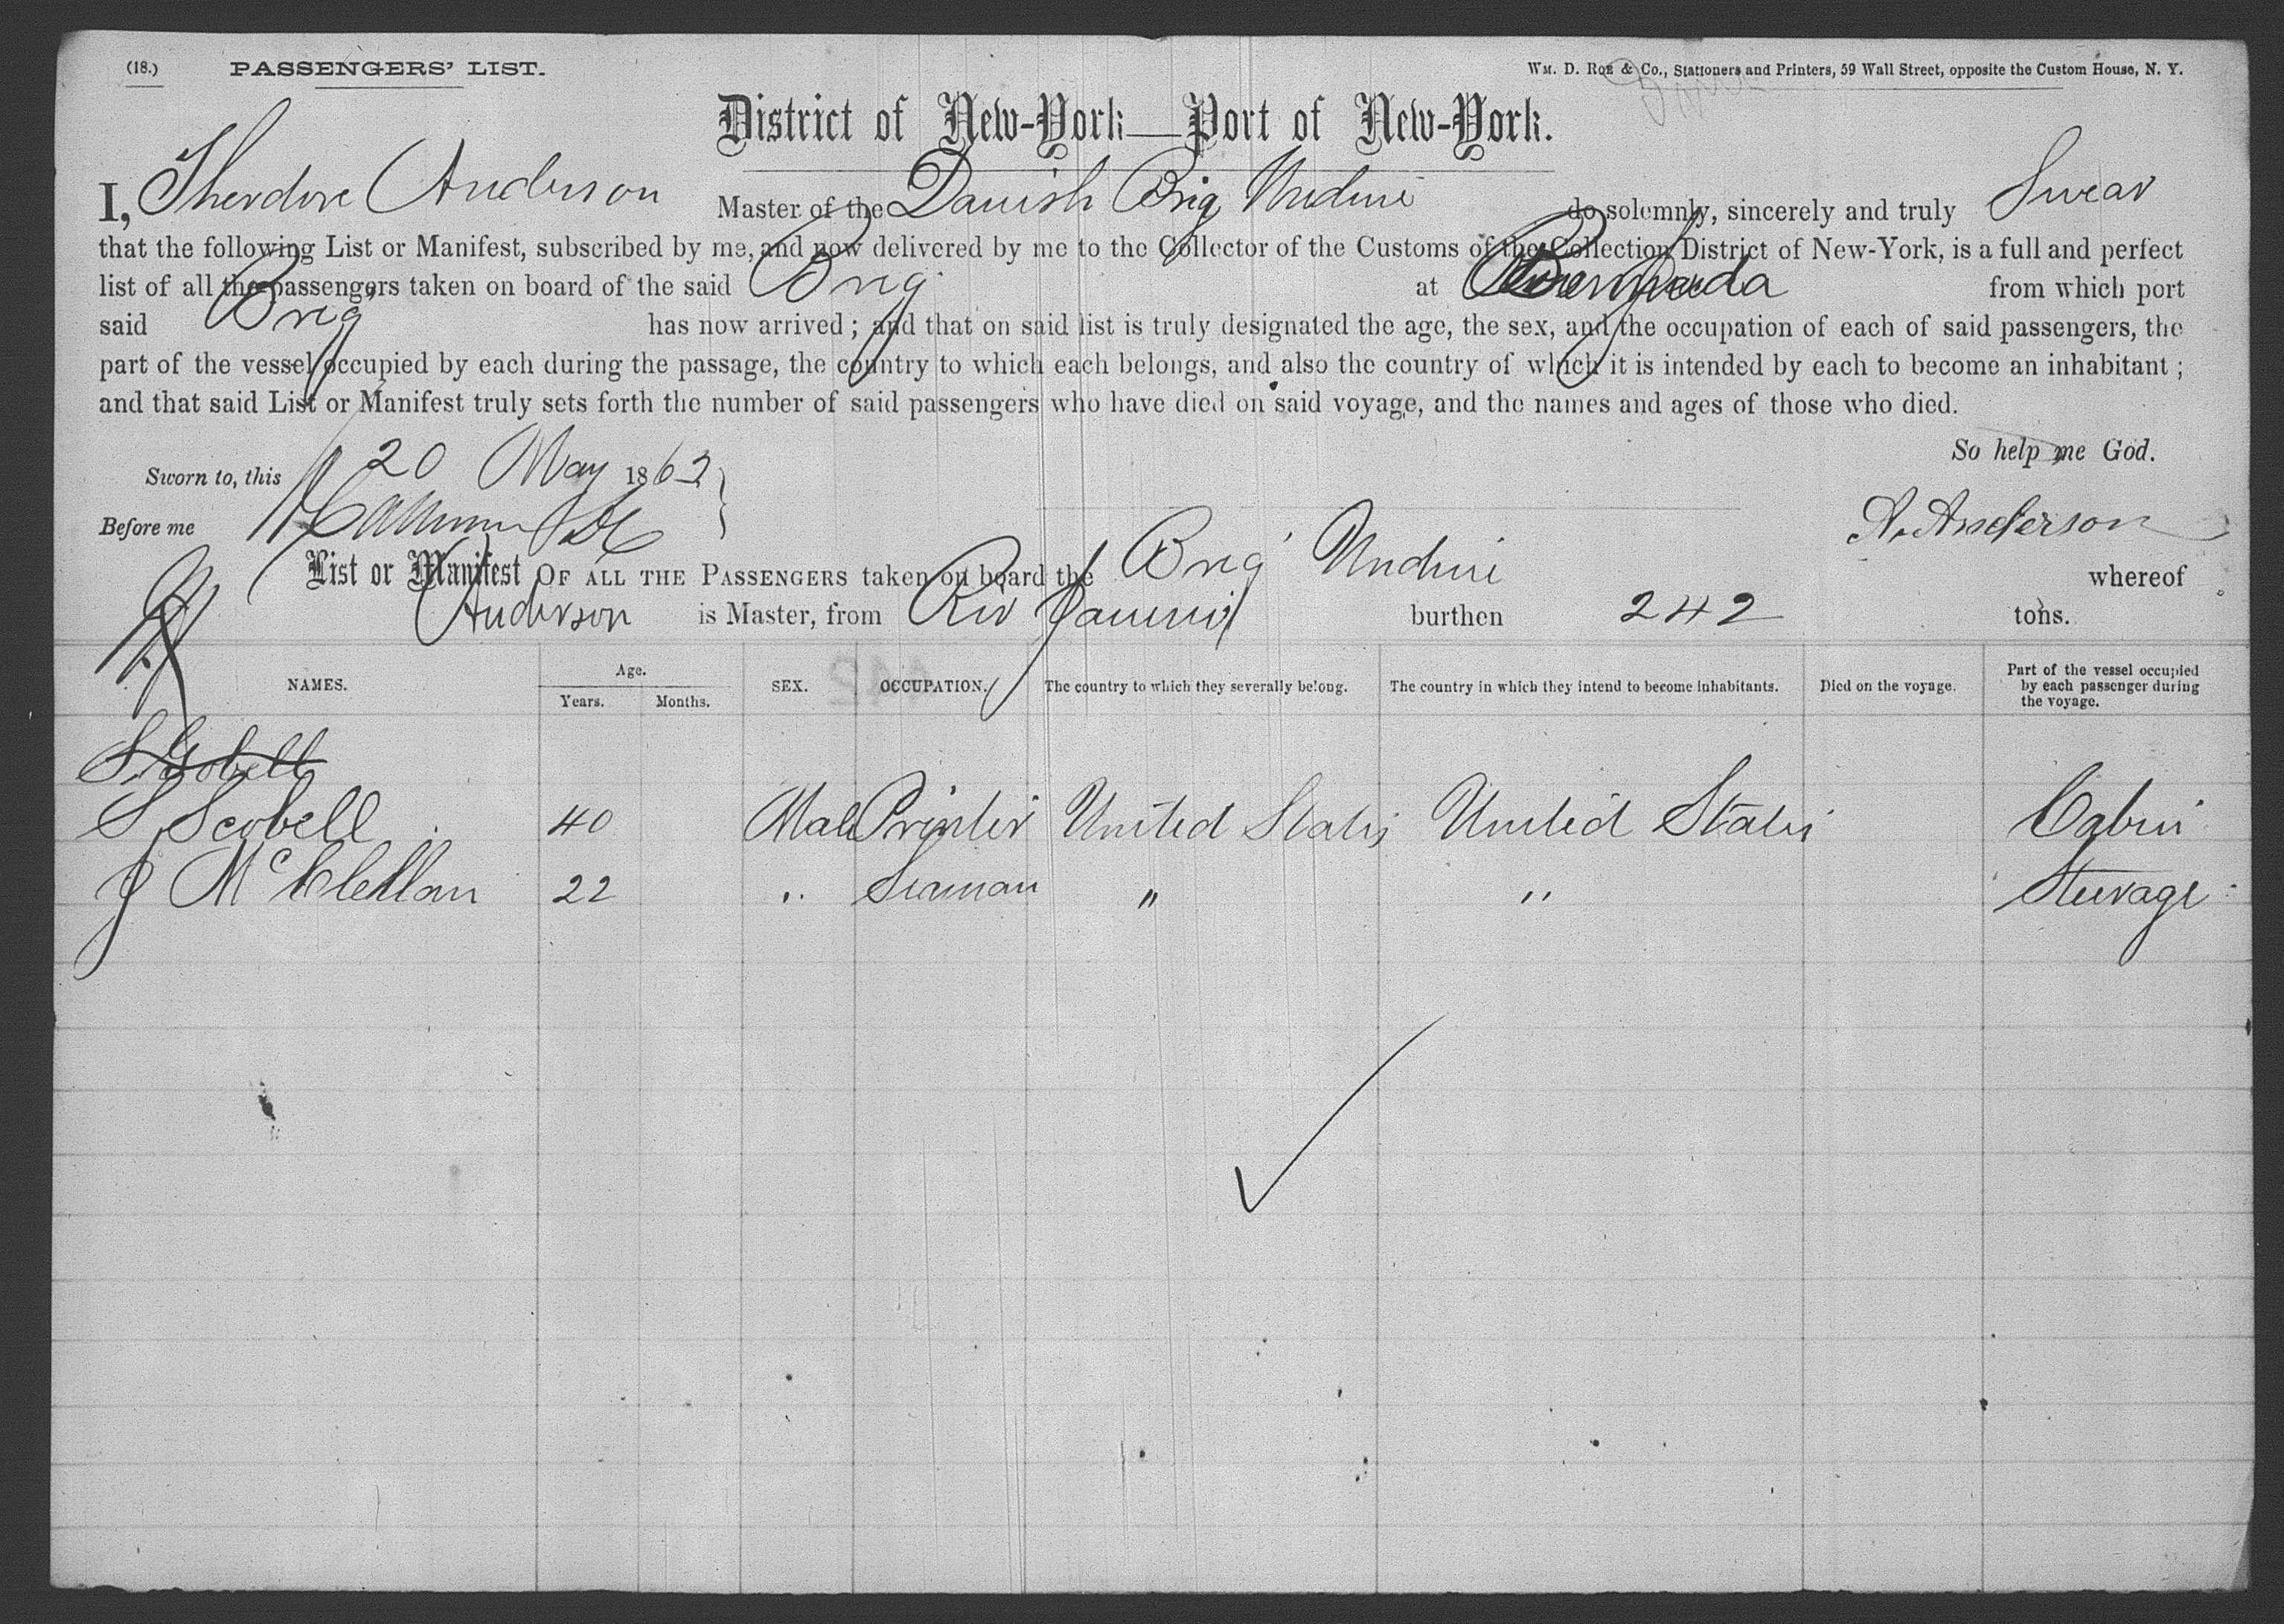 (18.) PASSENGERS' LIST. WM. D. ROE & Co., Stationers and Printers, 59 Wall Street, opposite the Custom House, N. Y.
District of New-York—Port of New-York.
I, Theodore Anderson Master of the Danish Brig Undine do solemnly, sincerely and truly Swear
that the following List or Manifest, subscribed by me, and now delivered by me to the Collector of the Customs of the Collection District of New-York, is a full and perfect
list of all the passengers taken on board of the said Brig at Bermuda from which port
said Brig has now arrived; and that on said list is truly designated the age, the sex, and the occupation of each of said passengers, the
part of the vessel occupied by each during the passage, the country to which each belongs, and also the country of which it is intended by each to become an inhabitant;
and that said List or Manifest truly sets forth the number of said passengers who have died on said voyage, and the names and ages of those who died.
So help me God.
Sworn to, this 20 May 1863
Before me
A. Anderson
List or Manifest OF ALL THE PASSENGERS taken on board the Brig Undine whereof
Anderson is Master, from Rio Janeiro burthen 242 tons.
NAMES. Age. Years. Months. SEX. OCCUPATION. The country to which they severally belong. The country in which they intend to become inhabitants. Died on the voyage. Part of the vessel occupied by each passenger during the voyage.
S Scobell 40 Male Printer United States United States Cabin
J McClellan 22 " Seaman " " Steerage